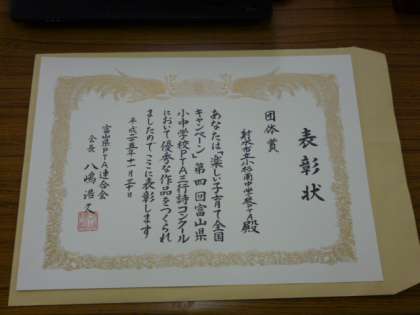 表彰状
団体賞
射水市立小杉南中学校PTA殿
あなたは「楽しい子育て全国
キャンペーン 第四回富山県
小中学校PTA三行詩コンクール
において優秀な作品をつくられ
ましたのでここに表彰します
平成二十五年十一月三十日
富山県PTA連合会
会長 八嶋浩久